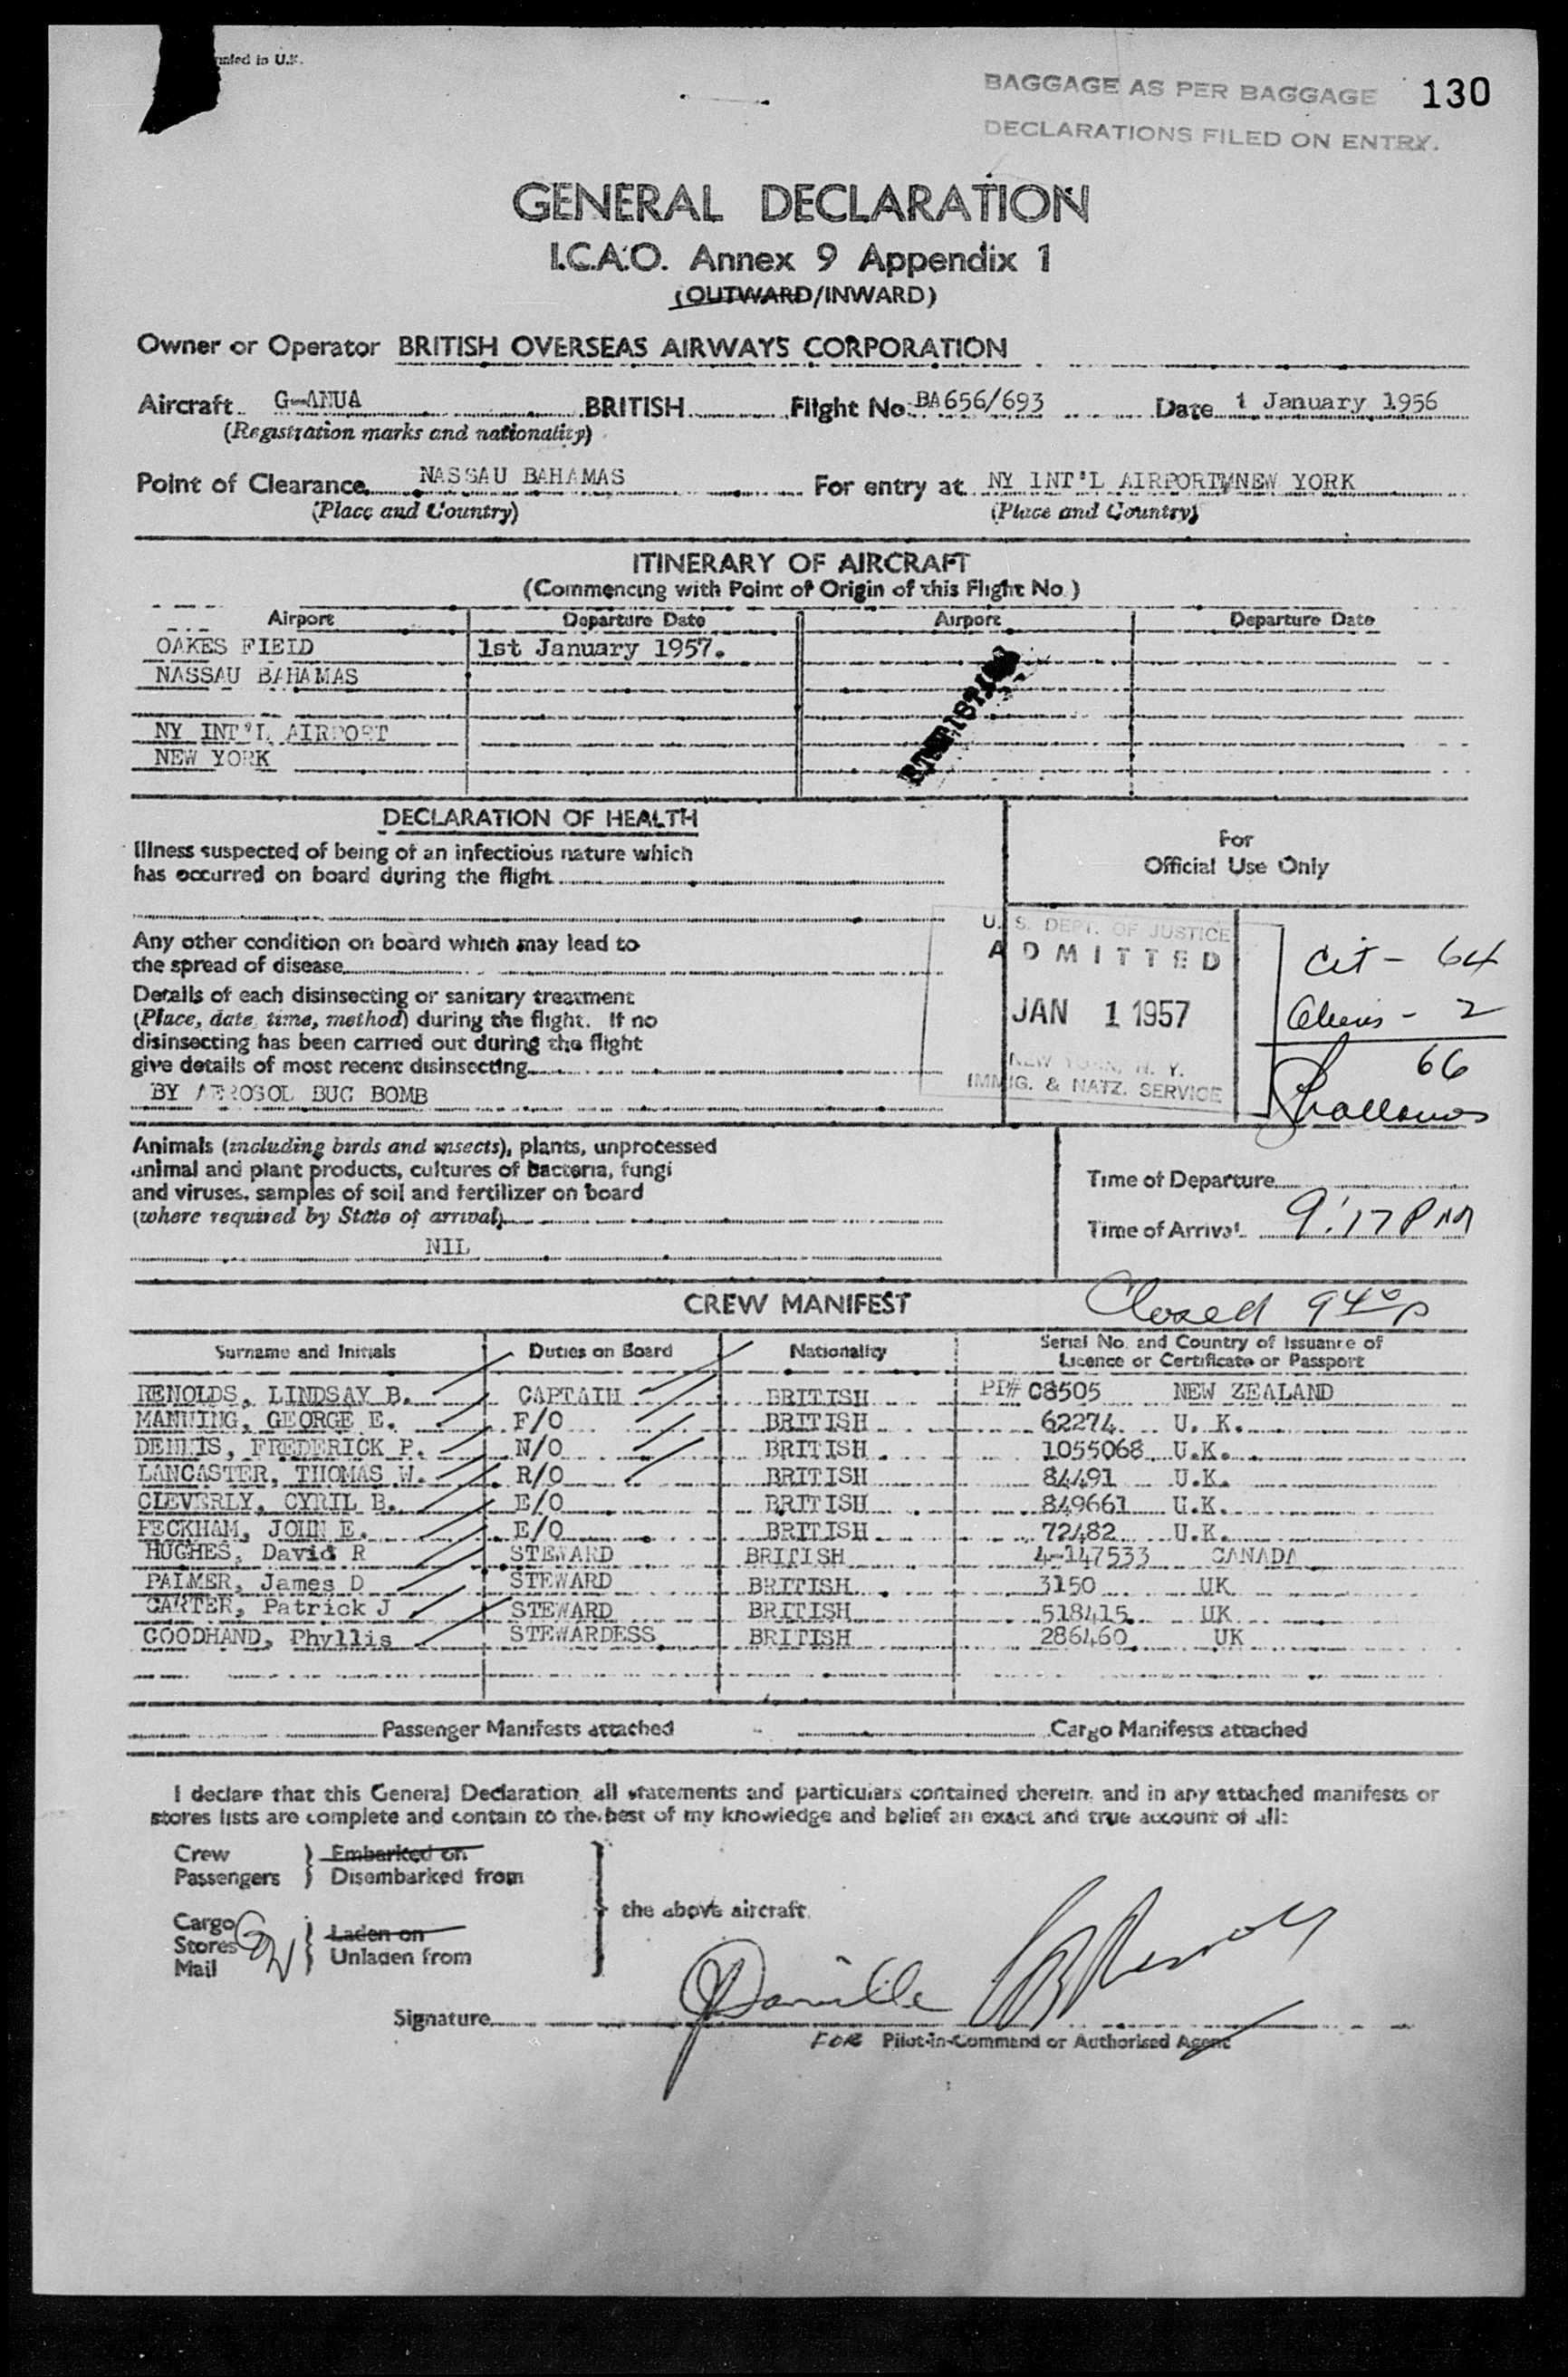 Printed in U.K.
BAGGAGE AS PER BAGGAGE 130
DECLARATIONS FILED ON ENTRY.
GENERAL DECLARATION
I.C.A.O. Annex 9 Appendix 1
(OUTWARD/INWARD)
Owner or Operator BRITISH OVERSEAS AIRWAYS CORPORATION
Aircraft G-ANUA BRITISH Flight No. BA656/693 Date 1 January 1956
(Registration marks and nationality)
Point of Clearance NASSAU BAHAMAS For entry at NY INT'L AIRPORT NEW YORK
(Place and Country) (Place and Country)
ITINERARY OF AIRCRAFT
(Commencing with Point of Origin of this Flight No.)
Airport Departure Date Airport Departure Date
OAKES FIELD 1st January 1957.
NASSAU BAHAMAS
NY INT'L AIRPORT
NEW YORK
DECLARATION OF HEALTH
Illness suspected of being of an infectious nature which
has occurred on board during the flight
For
Official Use Only
Any other condition on board which may lead to
the spread of disease
Details of each disinsecting or sanitary treatment
(Place, date, time, method) during the flight. If no
disinsecting has been carried out during the flight
give details of most recent disinsecting
BY AEROSOL BUG BOMB
U.S. DEPT. OF JUSTICE
ADMITTED
JAN 1 1957
NEW YORK, N. Y.
IMMIG. & NATZ. SERVICE
Cit - 64
Aliens - 2
66
Animals (including birds and insects), plants, unprocessed
animal and plant products, cultures of bacteria, fungi
and viruses, samples of soil and fertilizer on board
(where required by State of arrival)
NIL
Time of Departure
Time of Arrival 9:17 PM
CREW MANIFEST Closed 940p
Surname and Initials Duties on Board Nationality Serial No. and Country of Issuance of
Licence or Certificate or Passport
RENOLDS, LINDSAY B. CAPTAIN BRITISH PP# C8505 NEW ZEALAND
MANNING, GEORGE E. F/O BRITISH 62274 U. K.
DENNIS, FREDERICK P. N/O BRITISH 1055068 U.K.
LANCASTER, THOMAS W. R/O BRITISH 84491 U.K.
CLEVERLY, CYRIL B. E/O BRITISH 849661 U.K.
PECKHAM, JOHN E. E/O BRITISH 72482 U.K.
HUGHES, David R STEWARD BRITISH 4-147533 CANADA
PALMER, James D STEWARD BRITISH 3150 UK
CARTER, Patrick J STEWARD BRITISH 518415 UK
GOODHAND, Phyllis STEWARDESS BRITISH 286460 UK
Passenger Manifests attached Cargo Manifests attached
I declare that this General Declaration, all statements and particulars contained therein, and in any attached manifests or
stores lists are complete and contain to the best of my knowledge and belief an exact and true account of all:
Crew } Embarked on
Passengers } Disembarked from
the above aircraft.
Cargo
Stores } Laden on
Mail } Unladen from
Signature
FOR Pilot-in-Command or Authorised Agent